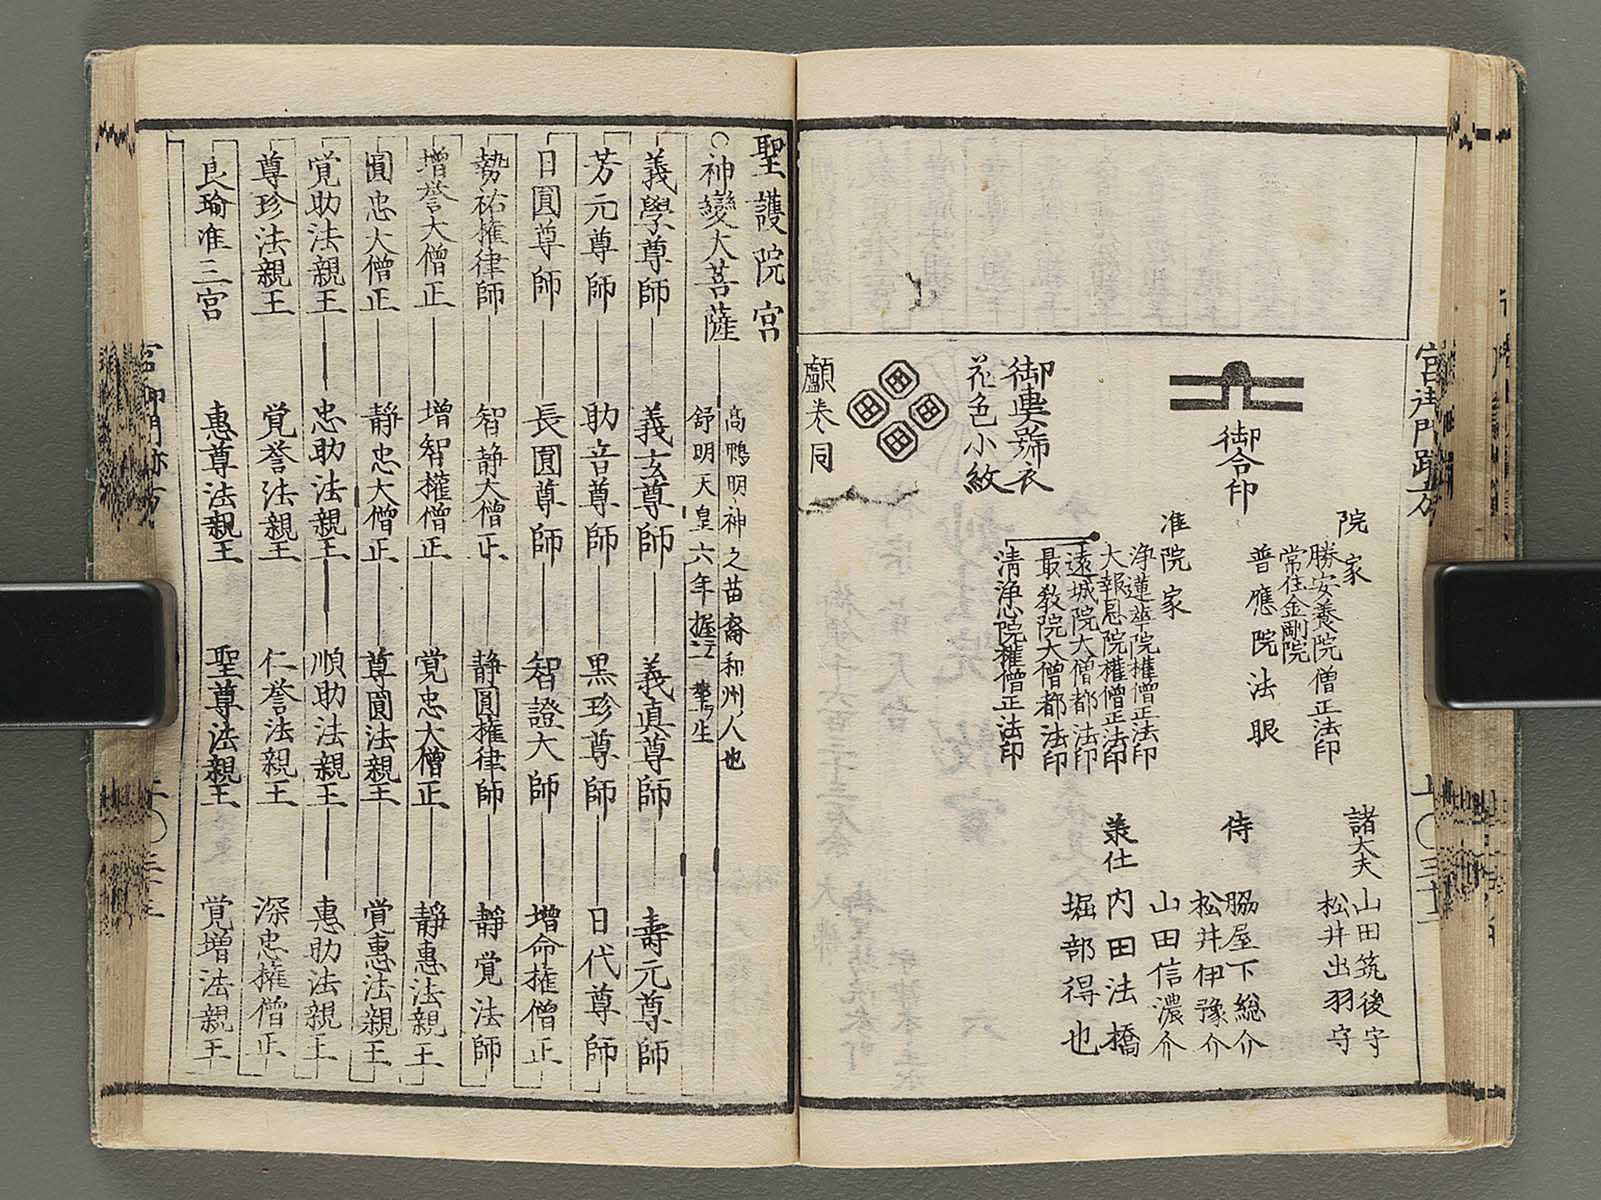 御合印
院家
勝安養院僧正法印
常住金剛院
普應院法眼
准院家
浄蓮華院権僧正法印
大報恩院権僧正法印
遠城院大僧都法印
最教院大僧都法印
清浄心院権僧正法印
諸大夫
山田筑後守
松井出羽守
侍
脇屋下総介
松井伊豫介
山田信濃介
兼仕
内田法橋
堀部得也
御輿舁衣
花色小紋
顱巻同
聖護院宮
神變大菩薩
高鴨明神之苗裔和州人也
舒明天皇六年
義學尊師 義玄尊師 義眞尊師 壽元尊師
芳元尊師 助音尊師 黒珍尊師 日代尊師
日圓尊師 長圓尊師 智證大師 増命権僧正
勢祐権律師 智静大僧正 静圓権律師 静覚法師
増誉大僧正 増智権僧正 覚忠大僧正 静惠法親王
圓忠大僧正 静忠大僧正 尊圓法親王 覚惠法親王
覚助法親王 忠助法親王 順助法親王 惠助法親王
尊珍法親王 覚誉法親王 仁誉法親王 深忠権僧正
良瑜准三宮 惠尊法親王 聖尊法親王 覚増法親王